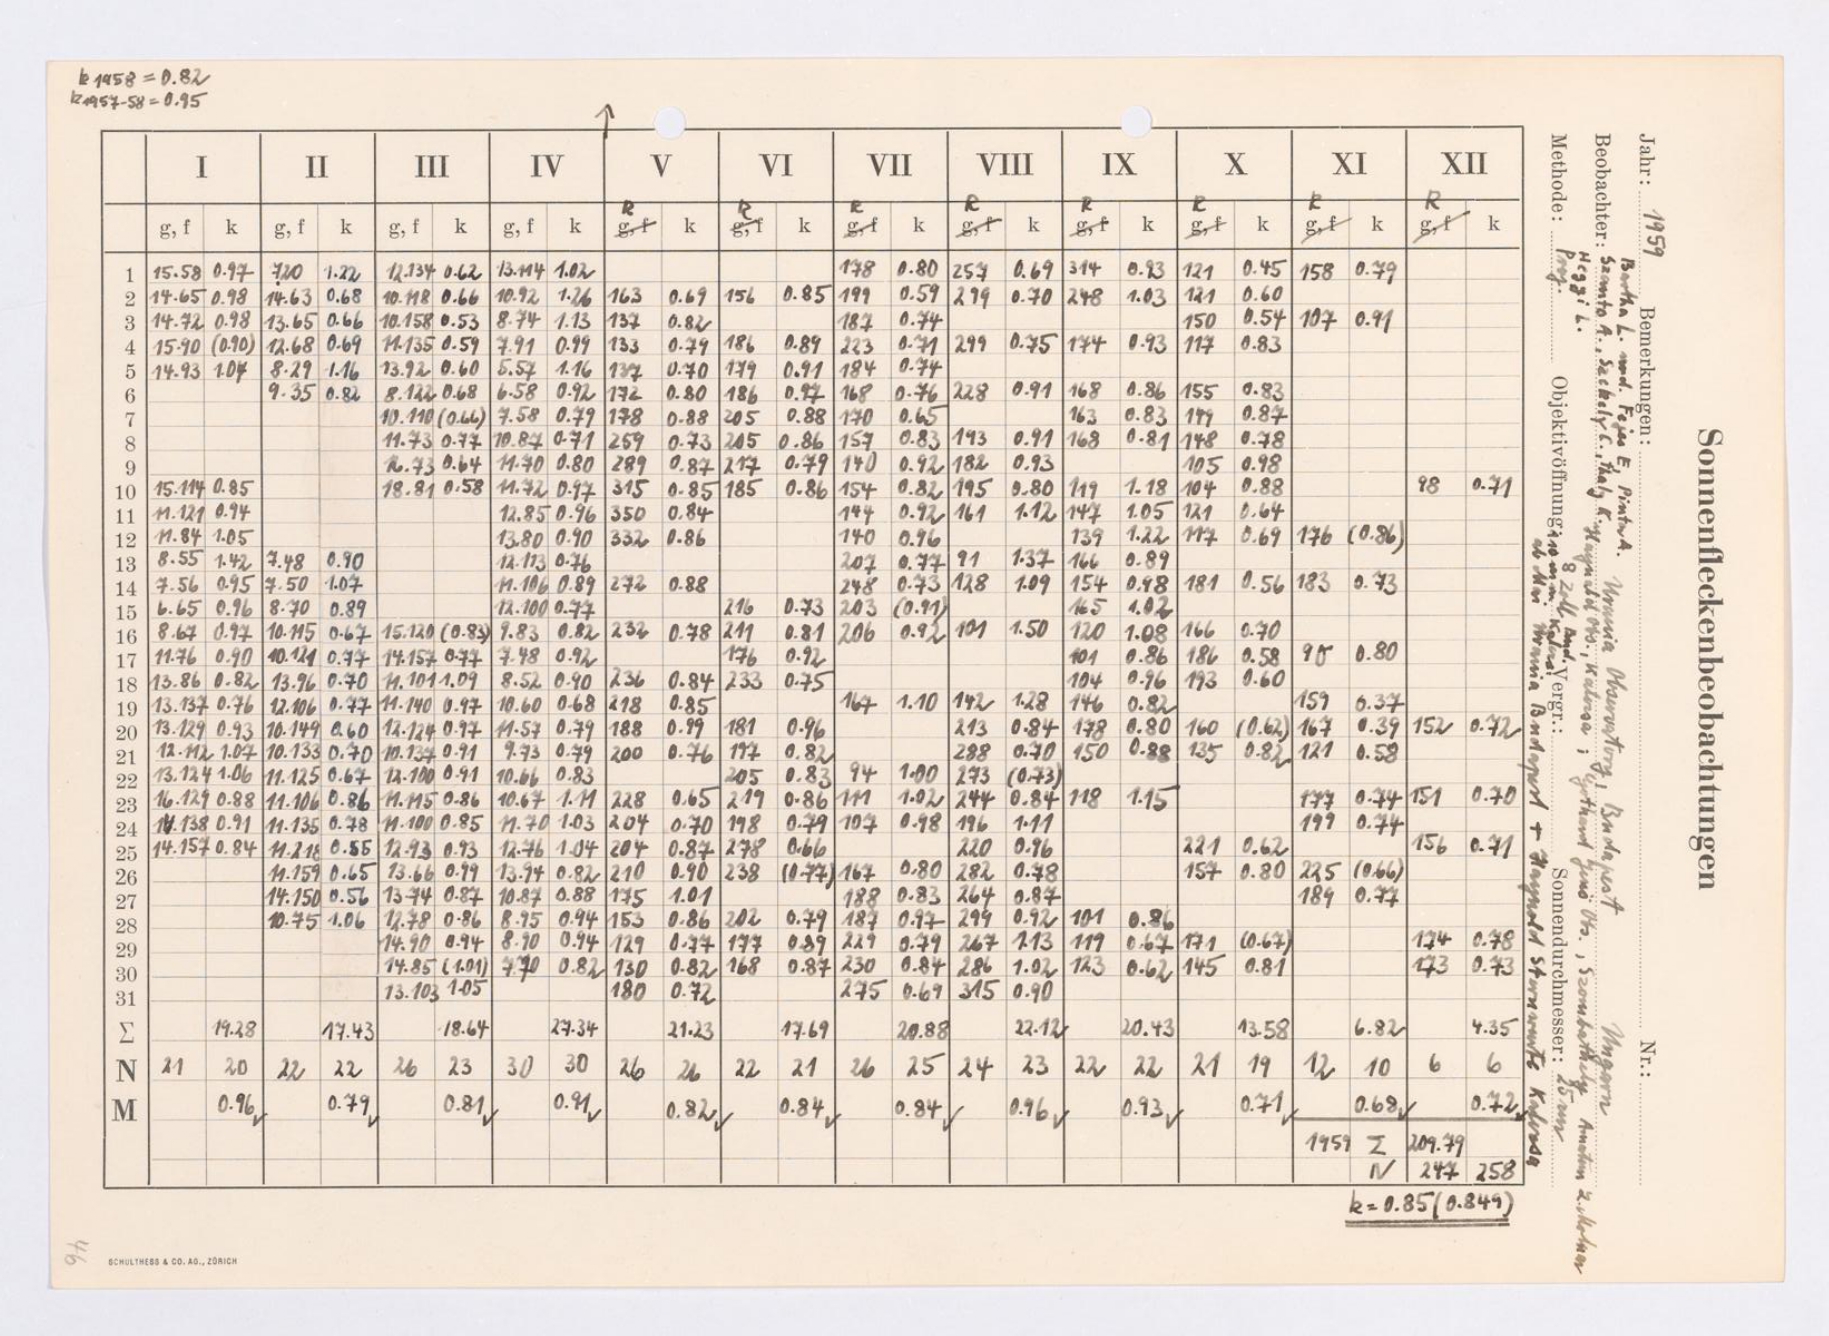 k 1958 = 0.82
k 1957-58 = 0.95
Sonnenfleckenbeobachtungen
Jahr: 1959 Bemerkungen: Nr.:
Beobachter:
Methode: Proj. Objektivöffnung: Vergr.: Sonnendurchmesser: 25 cm
Urania Observatory, Budapest Ungarn
I II III IV V VI VII VIII IX X XI XII
g, f k g, f k g, f k g, f k R g, f k R g, f k R g, f k R g, f k R g, f k R g, f k R g, f k R g, f k
1 15.58 0.97 7.20 1.22 12.134 0.62 13.114 1.02 178 0.80 257 0.69 314 0.93 121 0.45 158 0.79
2 14.65 0.98 14.63 0.68 10.118 0.66 10.92 1.26 163 0.69 156 0.85 199 0.59 299 0.70 248 1.03 121 0.60
3 14.72 0.98 13.65 0.66 10.158 0.53 8.74 1.13 137 0.82 187 0.74 150 0.54 107 0.91
4 15.90 (0.90) 12.68 0.69 11.135 0.59 7.91 0.99 133 0.79 186 0.89 223 0.71 299 0.75 174 0.93 117 0.83
5 14.93 1.07 8.29 1.16 13.92 0.60 5.57 1.16 137 0.70 179 0.91 184 0.74
6 9.35 0.82 8.122 0.68 6.58 0.92 172 0.80 186 0.97 168 0.76 228 0.91 168 0.86 155 0.83
7 10.110 (0.66) 7.58 0.79 178 0.88 205 0.88 170 0.65 163 0.83 149 0.87
8 11.73 0.77 10.87 0.71 259 0.73 205 0.86 157 0.83 193 0.91 168 0.81 148 0.78
9 12.73 0.64 11.70 0.80 289 0.87 217 0.79 140 0.92 182 0.93 105 0.98
10 15.114 0.85 18.81 0.58 11.72 0.97 315 0.85 185 0.86 154 0.82 195 0.80 119 1.18 104 0.88 98 0.71
11 11.121 0.94 12.85 0.96 350 0.84 144 0.92 161 1.12 147 1.05 121 0.64
12 11.84 1.05 13.80 0.90 332 0.86 140 0.96 139 1.22 117 0.69 176 (0.86)
13 8.55 1.42 7.48 0.90 12.113 0.76 207 0.77 91 1.37 166 0.89
14 7.56 0.95 7.50 1.07 11.106 0.89 272 0.88 248 0.73 128 1.09 154 0.98 181 0.56 183 0.73
15 6.65 0.96 8.70 0.89 12.100 0.77 216 0.73 203 (0.91) 165 1.02
16 8.67 0.97 10.115 0.67 15.120 (0.83) 9.83 0.82 232 0.78 211 0.81 206 0.92 101 1.50 120 1.08 166 0.70
17 11.76 0.90 10.121 0.77 14.157 0.77 7.48 0.92 176 0.92 101 0.86 186 0.58 0.80
18 13.86 0.82 13.96 0.70 11.101 1.09 8.52 0.90 236 0.84 233 0.75 104 0.96 193 0.60
19 13.137 0.76 12.106 0.77 11.140 0.97 10.60 0.68 218 0.85 167 1.10 142 1.28 146 0.82 159 0.37
20 13.129 0.93 10.149 0.60 12.124 0.97 11.57 0.79 188 0.99 181 0.96 213 0.84 178 0.80 160 (0.62) 167 0.39 152 0.72
21 12.112 1.07 10.133 0.70 10.137 0.91 9.73 0.79 200 0.76 197 0.82 288 0.70 150 0.88 135 0.82 121 0.58
22 13.124 1.06 11.125 0.67 12.100 0.91 10.66 0.83 205 0.83 94 1.00 273 (0.73)
23 16.129 0.88 11.106 0.86 11.115 0.86 10.67 1.11 228 0.65 219 0.86 111 1.02 244 0.84 118 1.15 177 0.74 151 0.70
24 14.138 0.91 11.135 0.78 11.100 0.85 11.70 1.03 204 0.70 198 0.79 107 0.98 196 1.11 199 0.74
25 14.157 0.84 11.218 0.55 12.93 0.93 12.76 1.04 204 0.87 278 0.66 220 0.96 221 0.62 156 0.71
26 11.159 0.65 13.66 0.99 13.94 0.82 210 0.90 238 (0.77) 167 0.80 282 0.78 157 0.80 225 (0.66)
27 14.150 0.56 13.74 0.87 10.87 0.88 175 1.01 188 0.83 264 0.87 189 0.77
28 10.75 1.06 12.78 0.86 8.95 0.94 153 0.86 202 0.79 187 0.97 299 0.92 101 0.86
29 14.90 0.94 8.90 0.94 129 0.77 177 0.89 229 0.79 267 1.13 119 0.67 171 (0.67) 174 0.78
30 14.85 (1.01) 7.70 0.82 130 0.82 168 0.87 230 0.84 286 1.02 123 0.62 145 0.81 173 0.73
31 13.103 1.05 180 0.72 275 0.69 315 0.90
Σ 19.28 17.43 18.64 27.34 21.23 17.69 20.88 22.12 20.43 13.58 6.82 4.35
N 21 20 22 22 26 23 30 30 26 26 22 21 26 25 24 23 22 22 21 19 12 10 6 6
M 0.96 0.79 0.81 0.91 0.82 0.84 0.84 0.96 0.93 0.71 0.68 0.72
1959 Σ 209.79
N 247 258
k = 0.85 (0.849)
46
SCHULTHESS & CO. AG., ZÜRICH